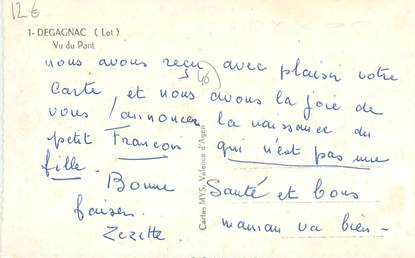 12€
1- DEGAGNAC (Lot)
Vu du Pont
nous avons reçu avec plaisir votre
carte, et nous avons la joie de
vous annoncer la naissance du
petit François qui n'est pas une
fille.
Bonne Santé et bons
baisers. maman va bien -
Zezette.
Cartes MYS, Valence d'Agen